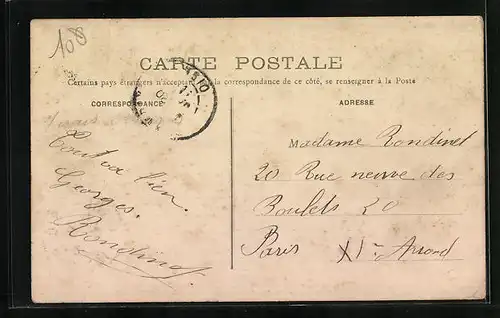 108
CARTE POSTALE
Certains pays étrangers n'acceptant la correspondance de ce côté, se renseigner à la Poste
CORRESPONDANCE
ADRESSE
Tout va bien.
Georges.
Rondinet
Madame Rondinet
20 Rue neuve des
Boulets 20
Paris XIe Arrond